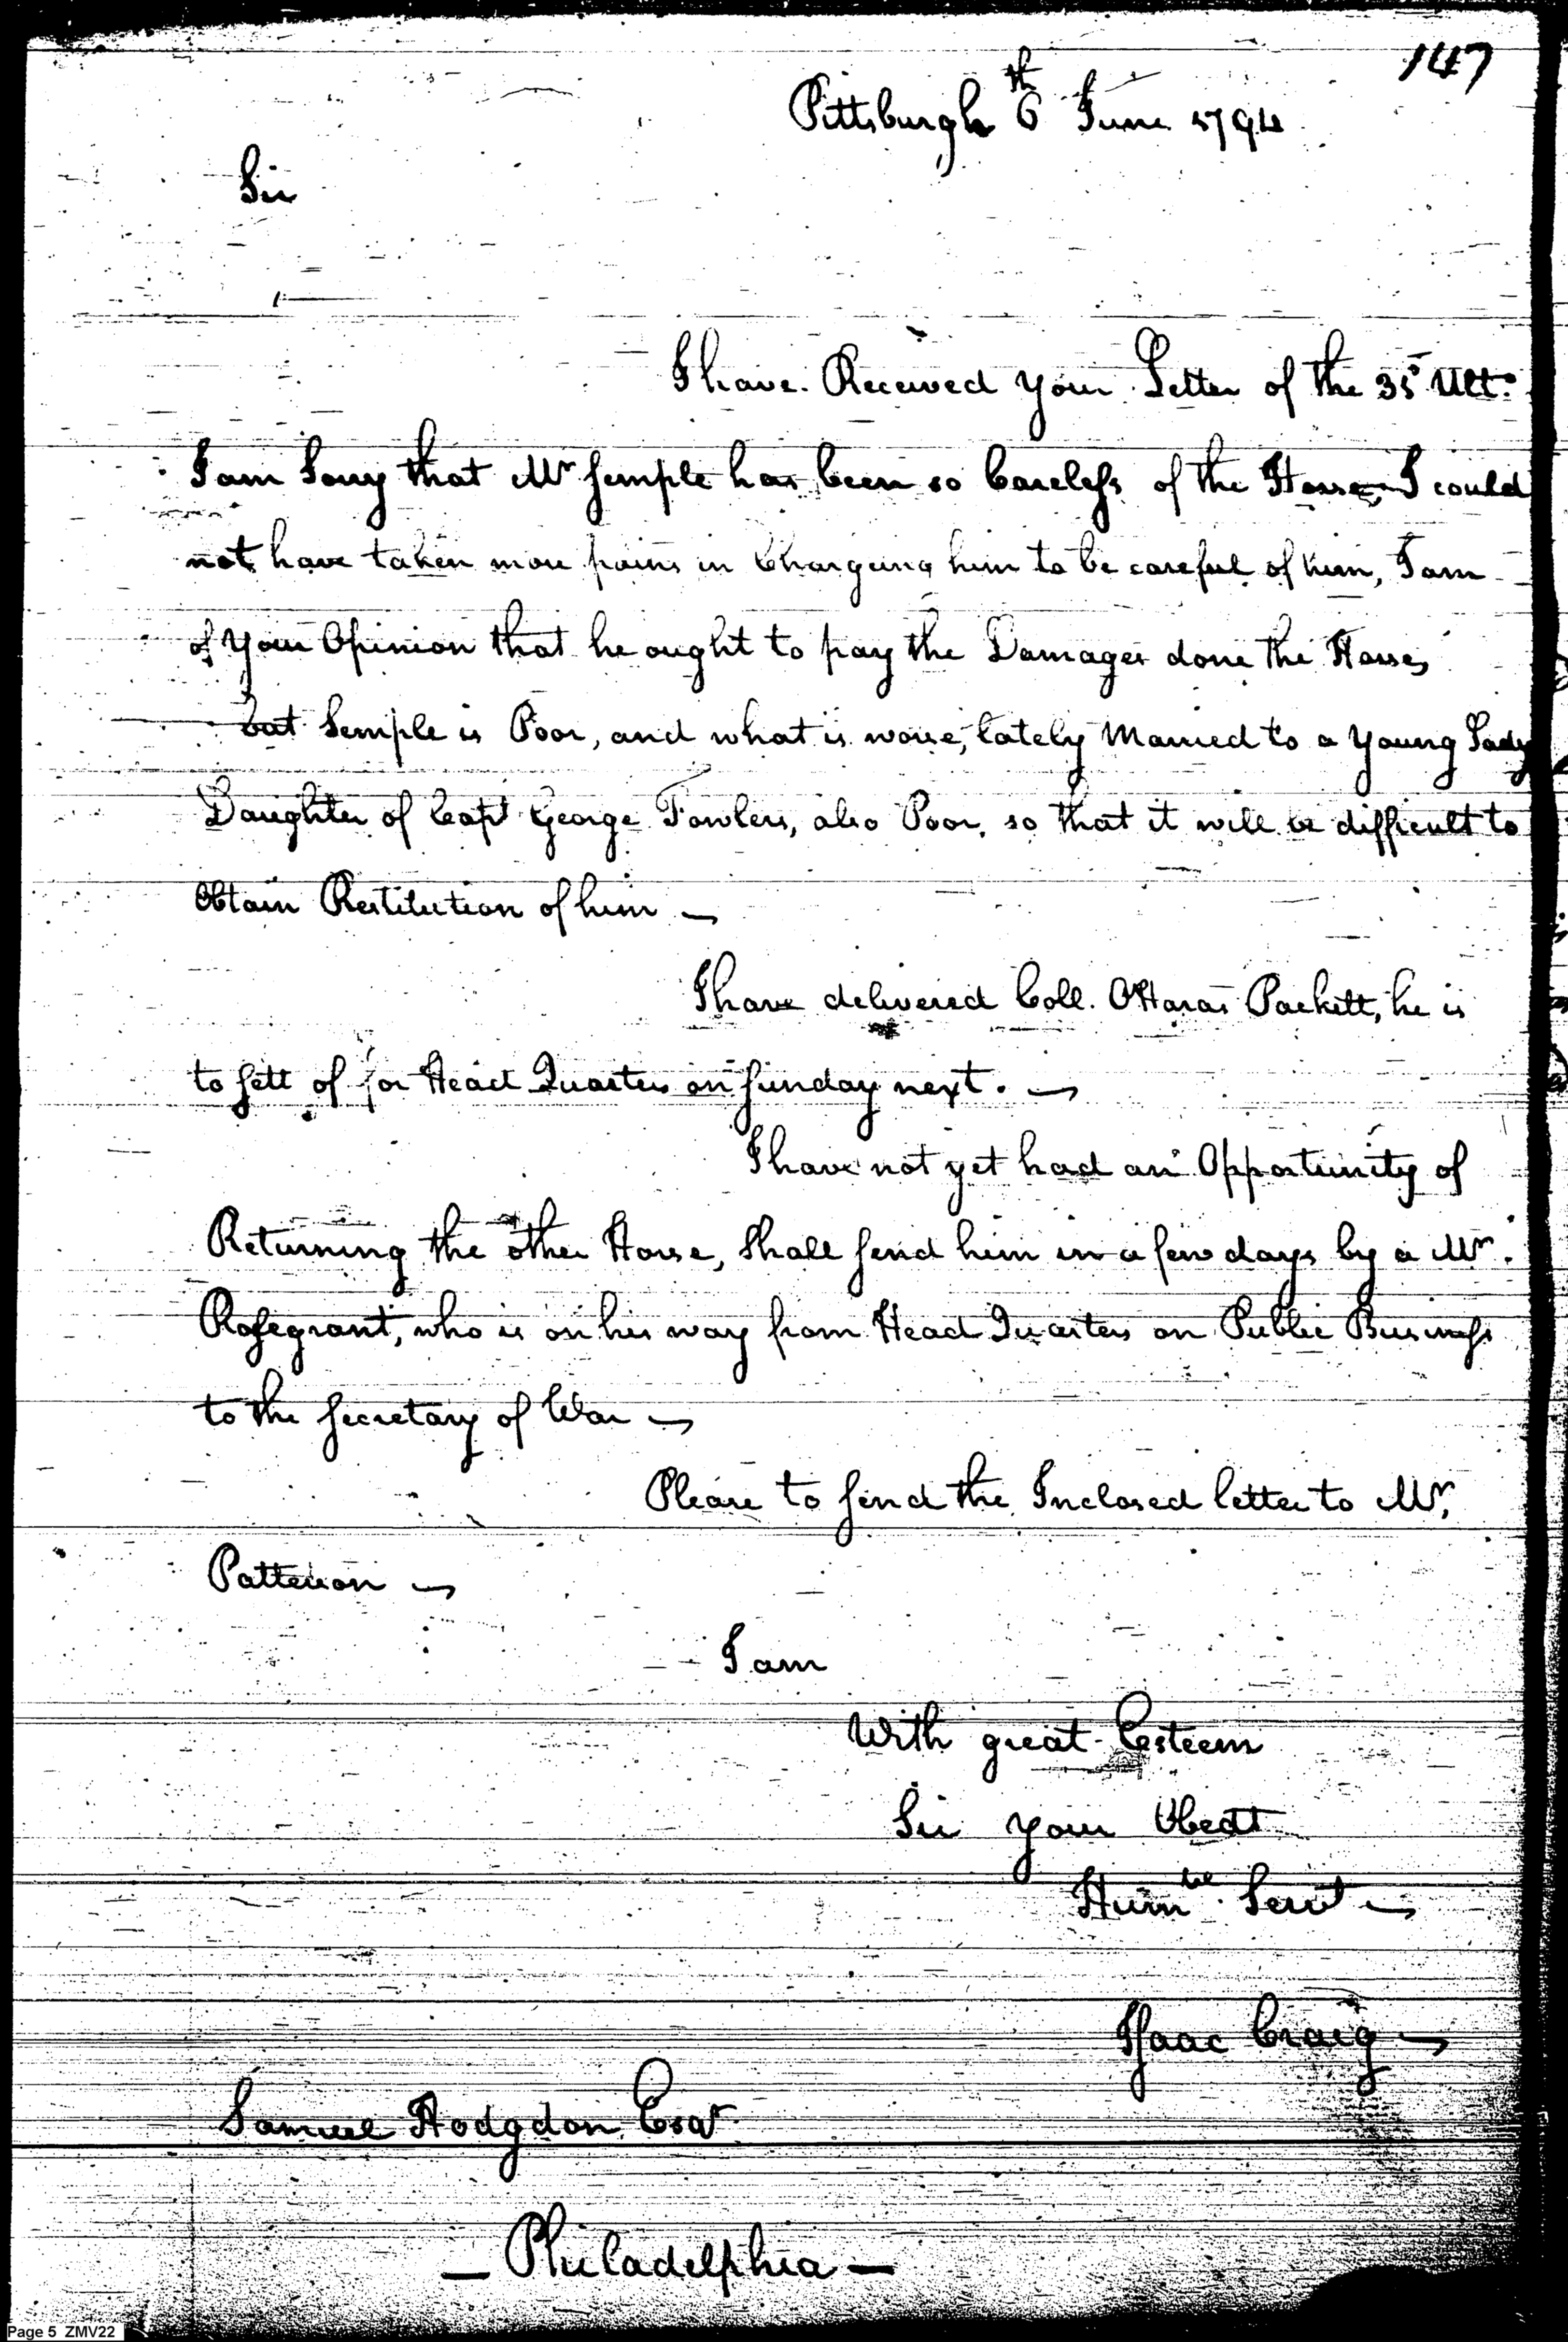 147
Pittsburgh 6th June 1794
Sir
I have Received your Letter of the Ult.o
I am Sorry that Mr Semple has been so Careless of the Horse, I could
not have taken more pains in Chargeing him to be careful of him, I am
of your Opinion that he ought to pay the Damages done the Horse,
but Semple is Poor, and what is worse, lately Married to a Young Lady
Daughter of Capt George Fowlers, also Poor, so that it will be difficult to
Obtain Restitution of him —
I have delivered Coll. OHaras Packett, he is
to sett of for Head Quarters on Sunday next. —
I have not yet had an Opportunity of
Returning the other Horse, Shall send him in a few days by a Mr.
Rosegrant, who is on his way from Head Quarters on Public Business
to the Secretary of War —
Please to send the Inclosed letter to Mr.
Patterson —
I am
With great Esteem
Sir your Obedt
Humble Servt —
Isaac Craig —
Samuel Hodgdon Esqr
— Philadelphia —
Page 5 ZMV22